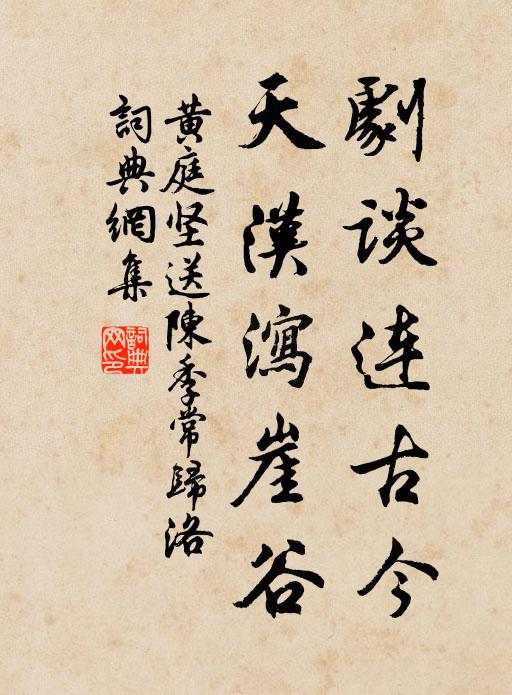 劇談连古今
天漢瀉崖谷
黄庭坚送陳季常歸洛
詞典網集
詞典网印